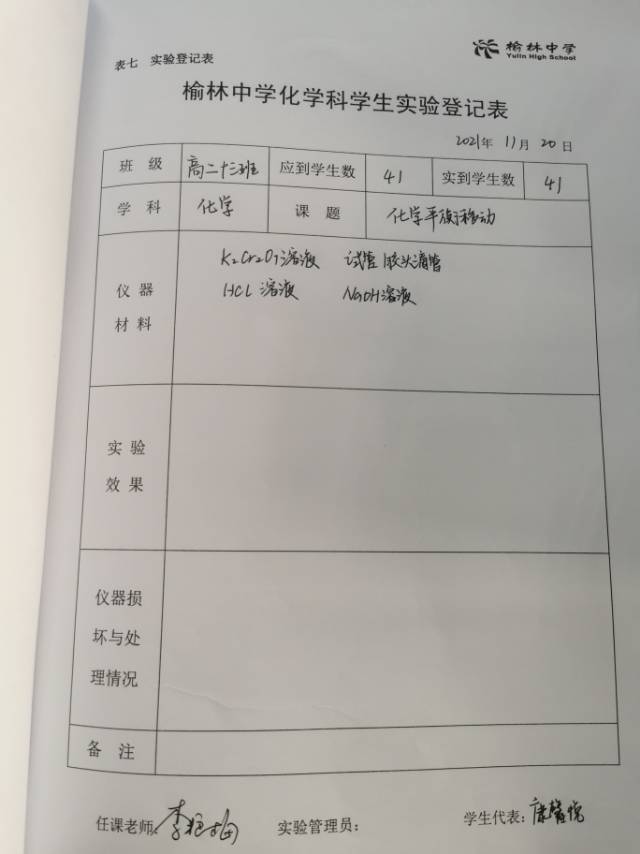 表七 实验登记表
榆林中学
Yulin High School
榆林中学化学科学生实验登记表
2021年 11月 20日
班级 高二十三班 应到学生数 41 实到学生数 41
学科 化学 课题 化学平衡移动
K2Cr2O7溶液 试管 胶头滴管
仪器 HCL溶液 NaOH溶液
材料
实验
效果
仪器损
坏与处
理情况
备注
任课老师: 实验管理员: 学生代表: